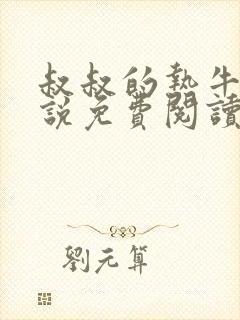 叔叔的執牛
說免費閱讀
劉元算